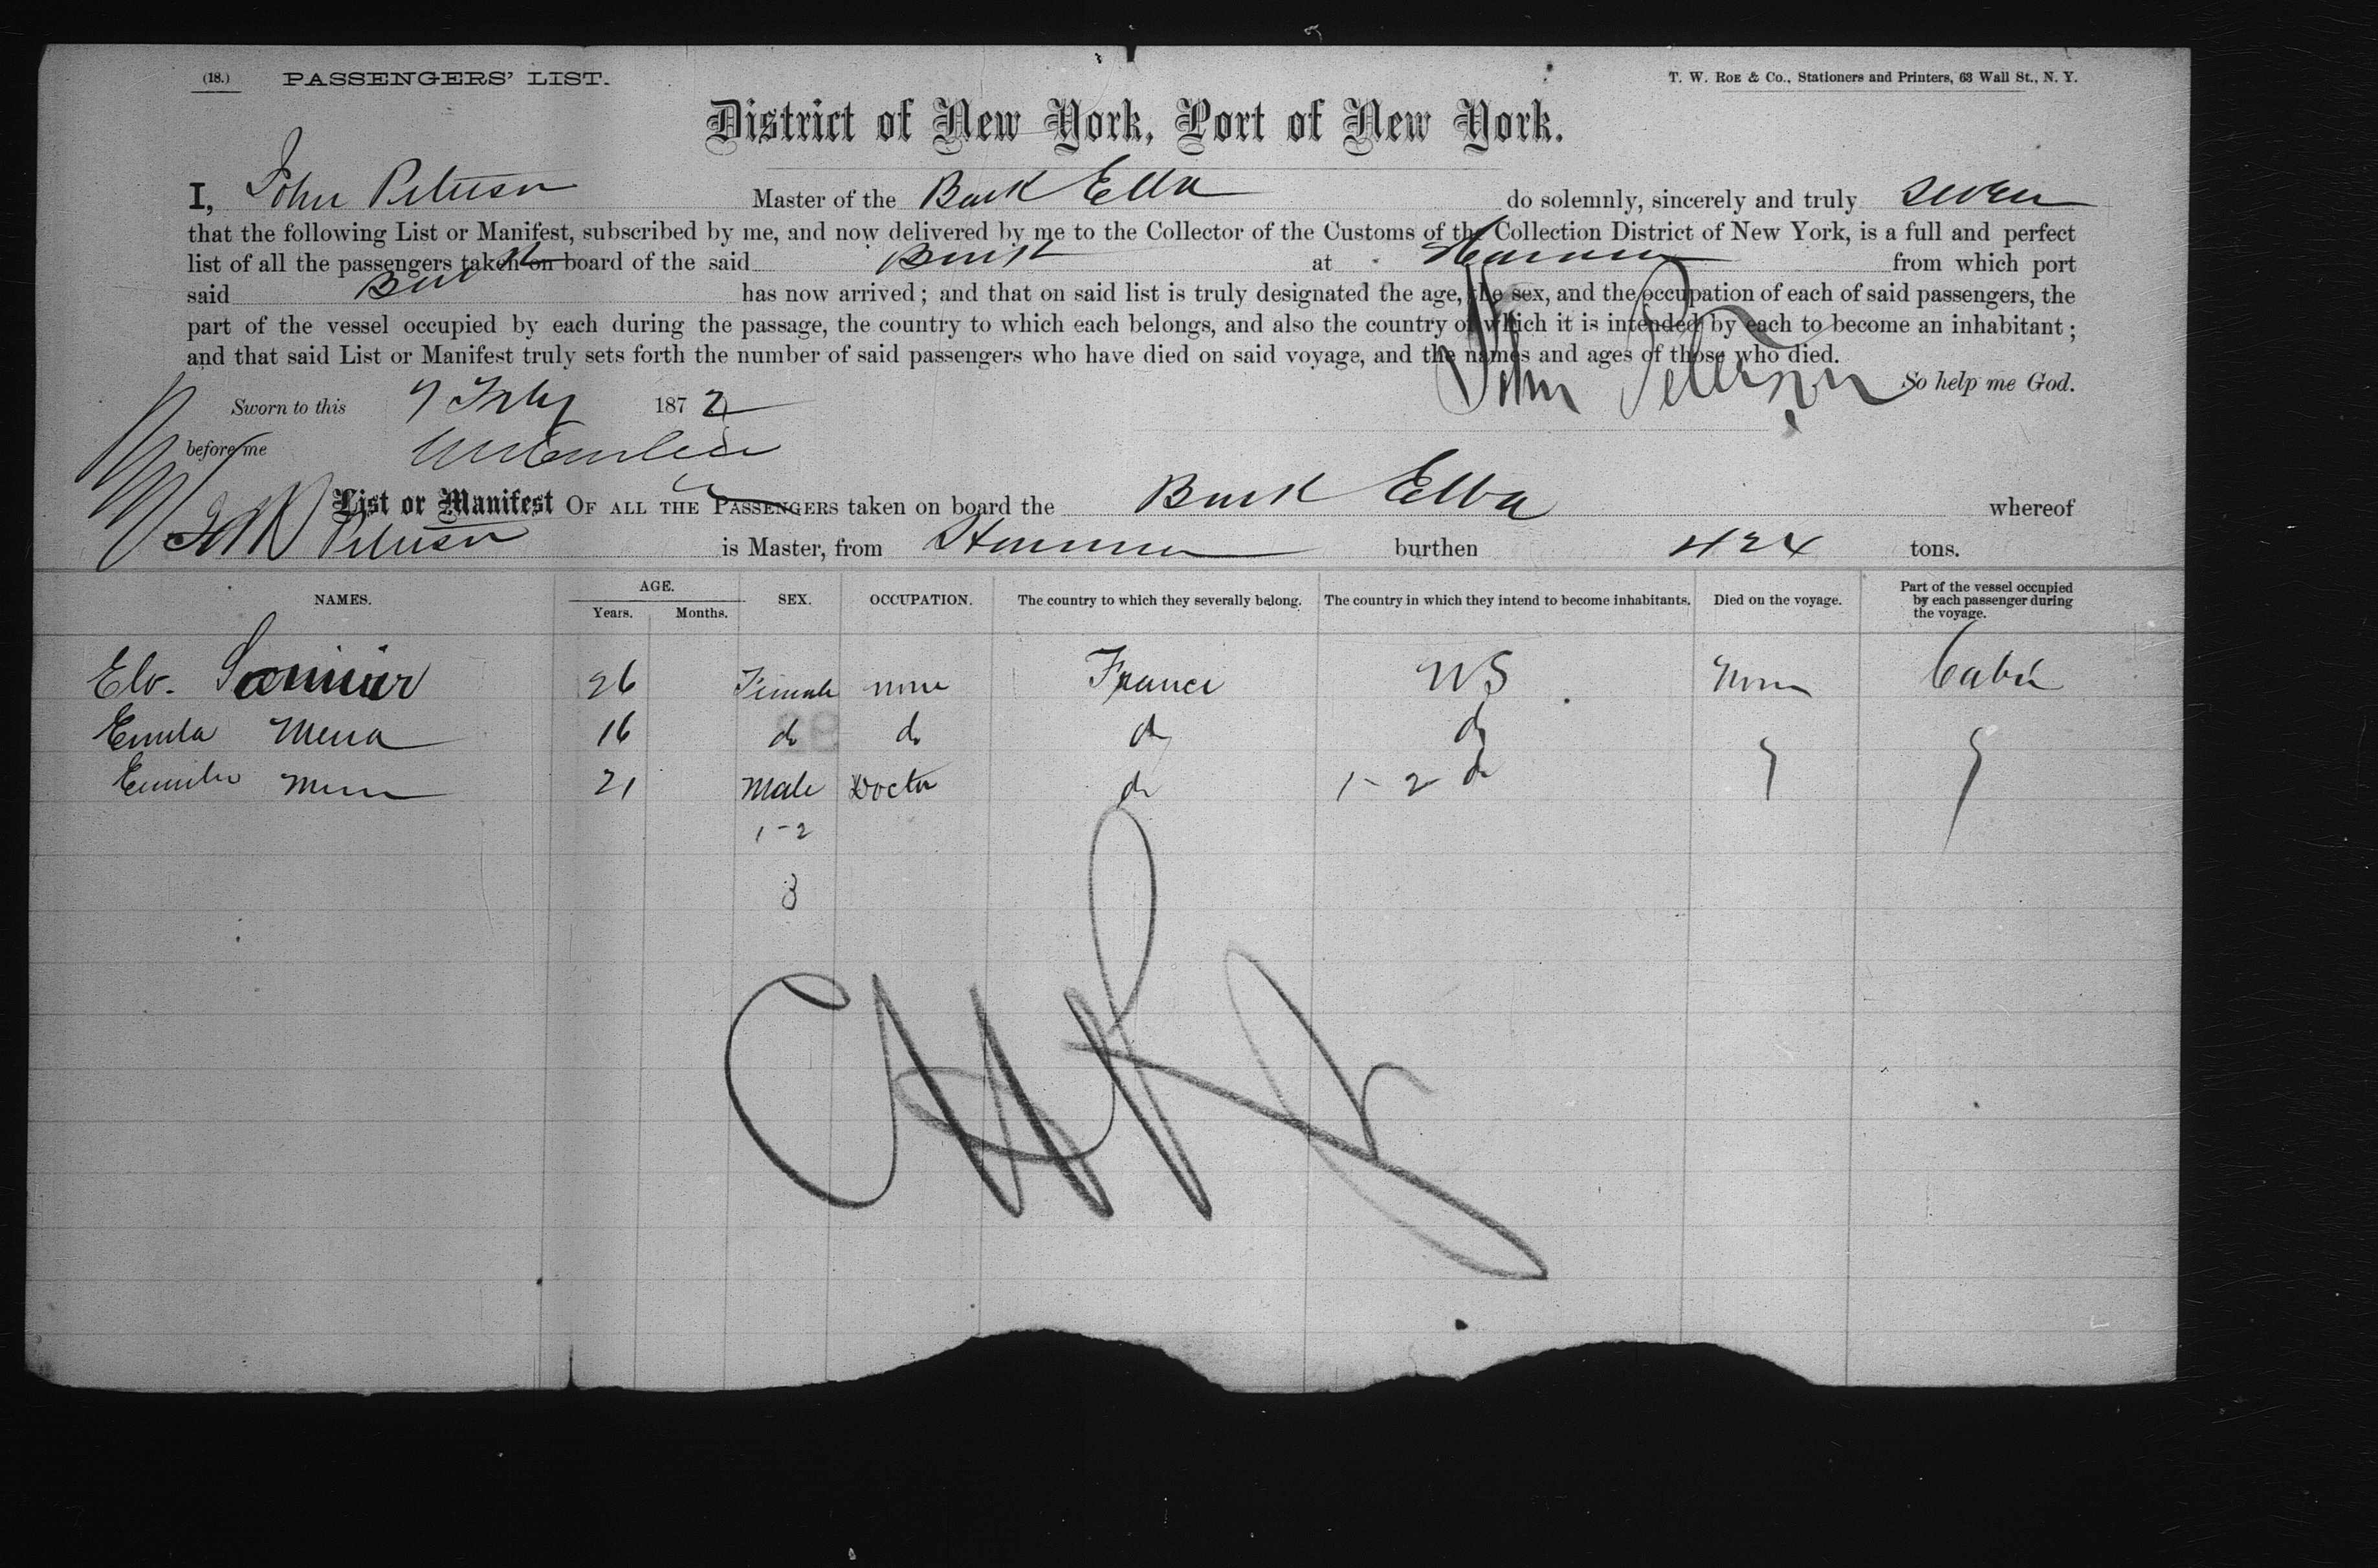 (18.) PASSENGERS' LIST. T. W. ROE & Co., Stationers and Printers, 63 Wall St., N. Y.
District of New York, Port of New York.
I, John Peterson Master of the Bark Elba do solemnly, sincerely and truly swear
that the following List or Manifest, subscribed by me, and now delivered by me to the Collector of the Customs of the Collection District of New York, is a full and perfect
list of all the passengers taken on board of the said Bark at from which port
said Bark has now arrived; and that on said list is truly designated the age, the sex, and the occupation of each of said passengers, the
part of the vessel occupied by each during the passage, the country to which each belongs, and also the country of which it is intended by each to become an inhabitant;
and that said List or Manifest truly sets forth the number of said passengers who have died on said voyage, and the names and ages of those who died.
John Peterson So help me God.
Sworn to this 7 187 2
before me
List or Manifest OF ALL THE PASSENGERS taken on board the Bark Elba whereof
Peterson is Master, from burthen 424 tons.
NAMES. AGE. Years. Months. SEX. OCCUPATION. The country to which they severally belong. The country in which they intend to become inhabitants. Died on the voyage. Part of the vessel occupied by each passenger during the voyage.
Elv. 26 Female none France US None Cabin
Mena 16 do do do do
21 Male Doctor do 1-2 do
1-2
3